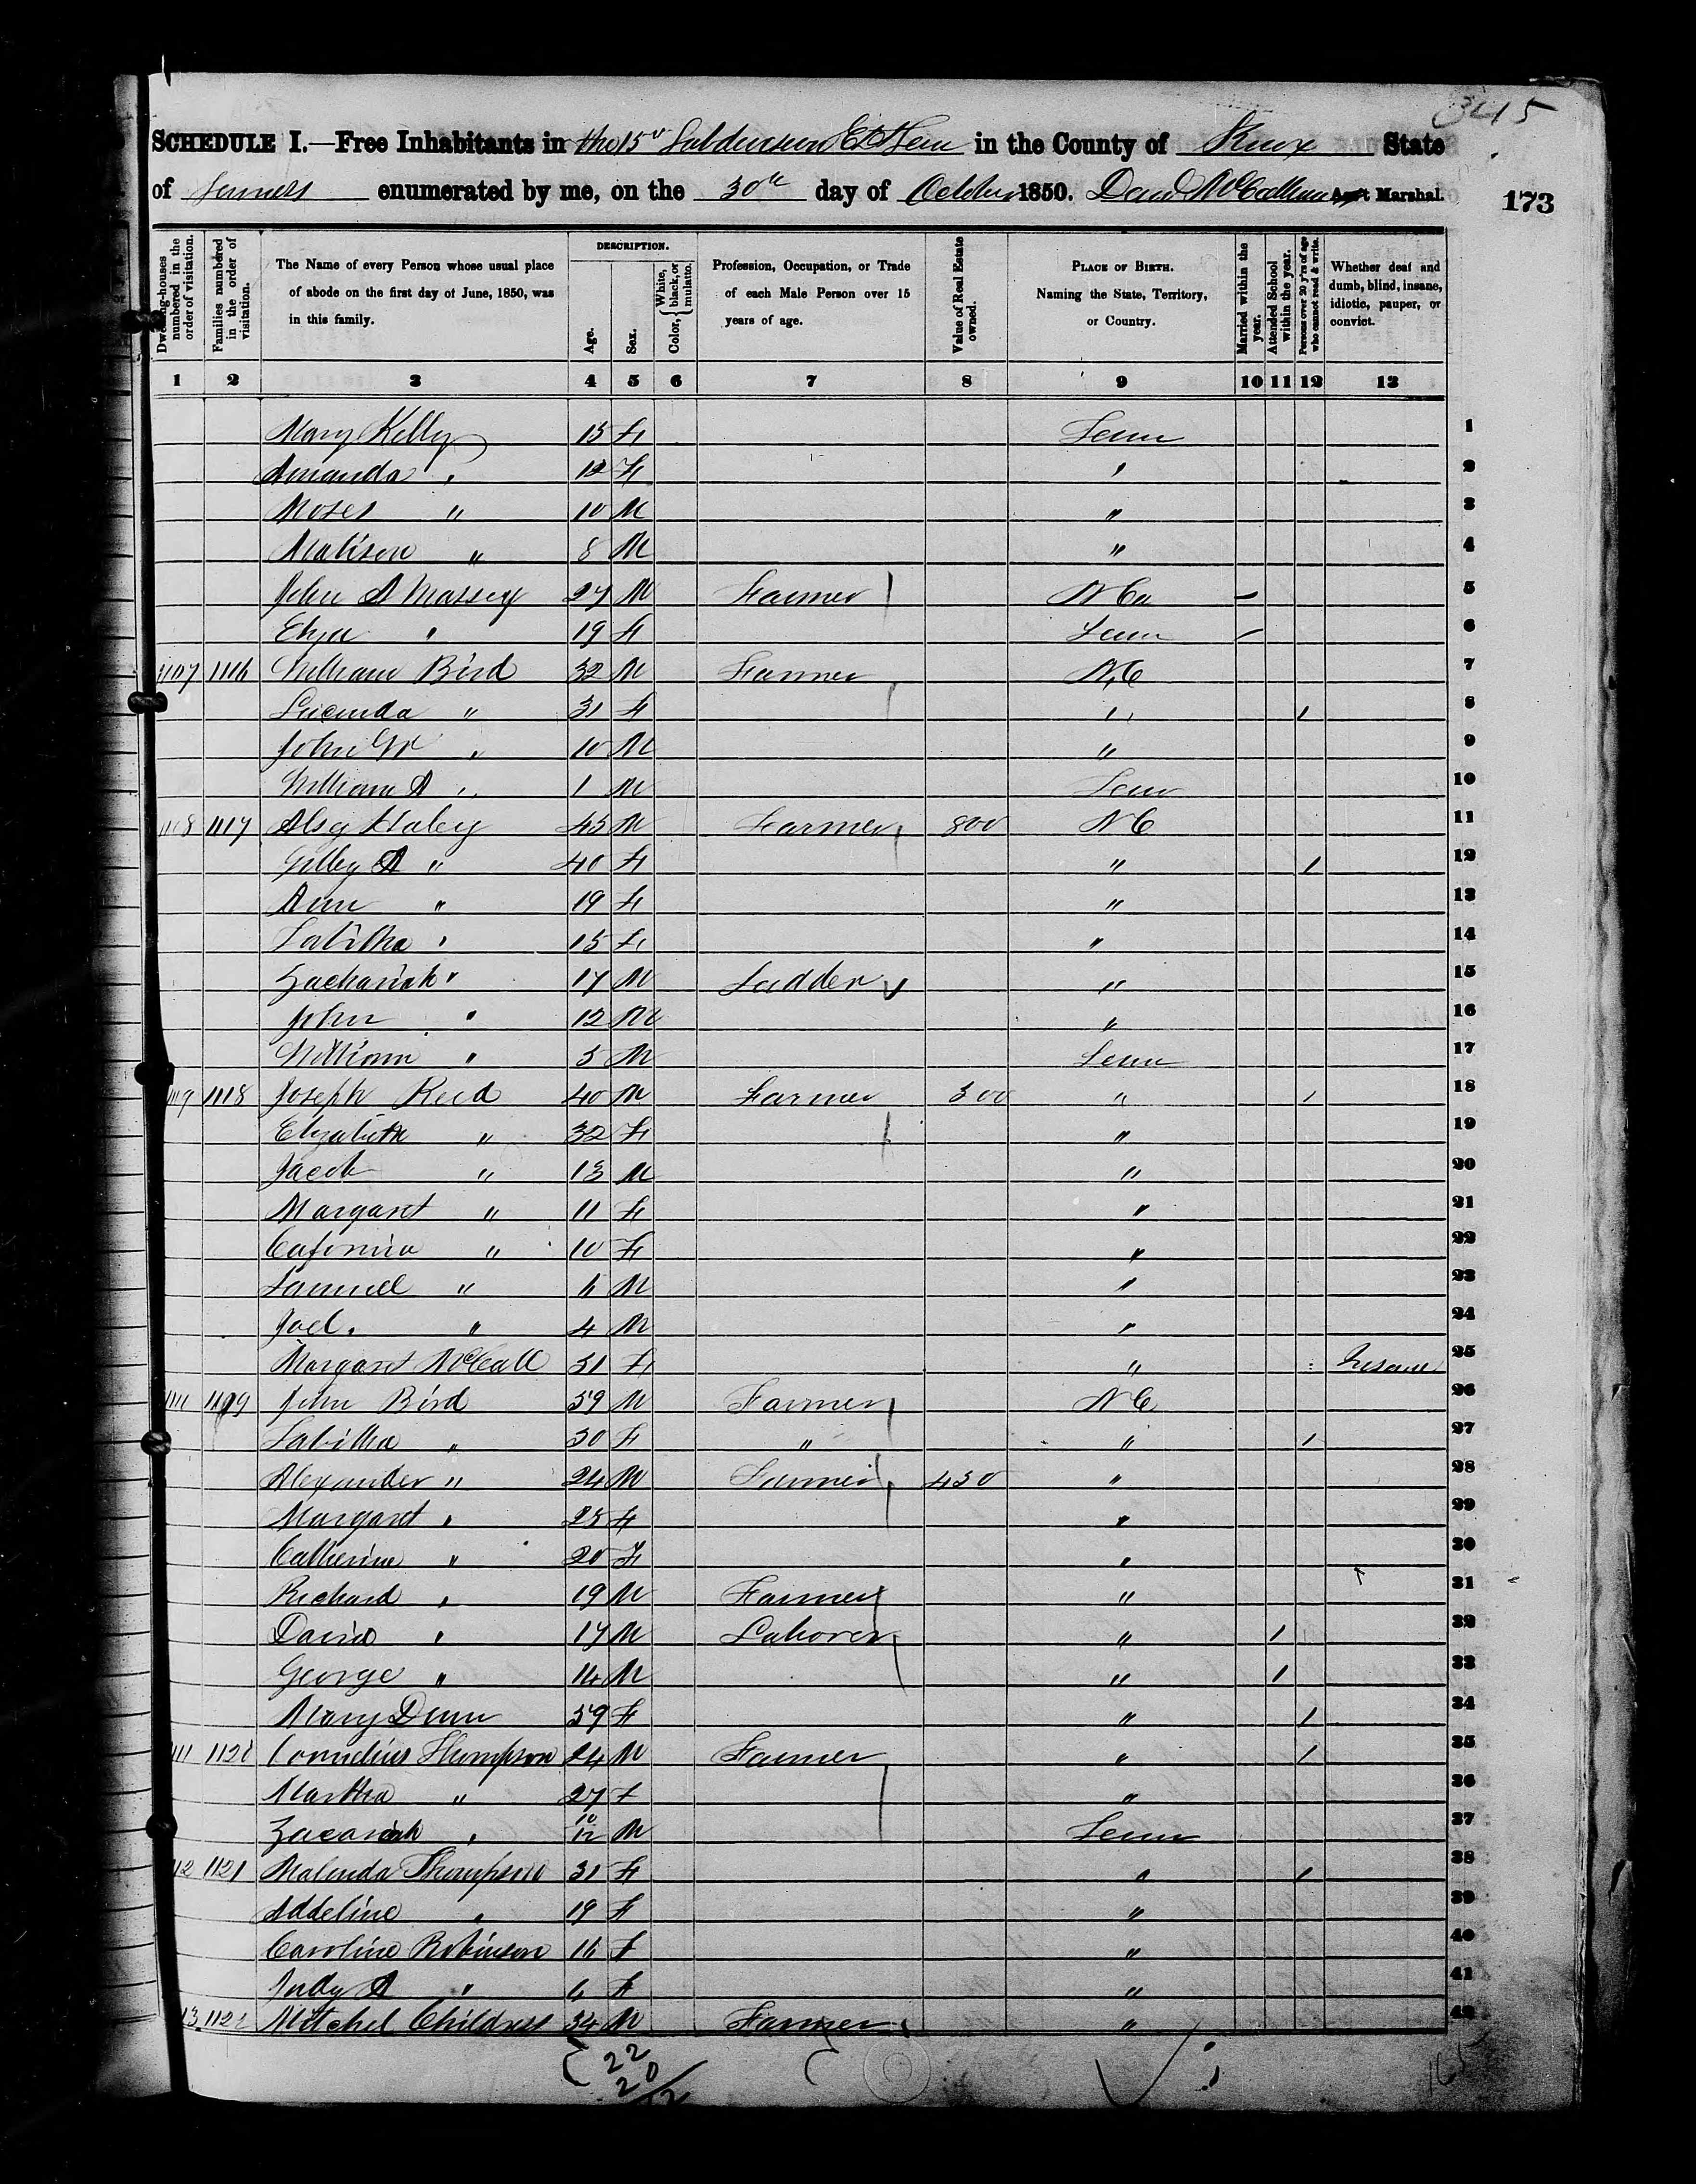 3415
SCHEDULE I.—Free Inhabitants in the 15 Subdivision E Tenn in the County of Knox State
of enumerated by me, on the 30th day of October 1850. David McCallum Ass't Marshal.
173
Dwelling-houses numbered in the order of visitation.
Families numbered in the order of visitation.
The Name of every Person whose usual place of abode on the first day of June, 1850, was in this family.
DESCRIPTION.
Age.
Sex.
Color, { White, black, or mulatto.
Profession, Occupation, or Trade of each Male Person over 15 years of age.
Value of Real Estate owned.
PLACE OF BIRTH. Naming the State, Territory, or Country.
Married within the year.
Attended School within the year.
Persons over 20 y'rs of age who cannot read & write.
Whether deaf and dumb, blind, insane, idiotic, pauper, or convict.
1 2 3 4 5 6 7 8 9 10 11 12 13
Mary Kelly 15 F Tenn 1
Amanda " 12 F " 2
Moses " 10 M " 3
Madison " 8 M " 4
John A Massey 27 M Farmer N Ca 5
Eliza " 19 F Tenn 6
1107 1116 William Bird 32 M Farmer N,C 7
Lucinda " 31 F " 1 8
John W " 10 M " 9
William A " 1 M Tenn 10
1108 1117 Alsey Haley 45 M Farmer 800 N C 11
Gilley A " 40 F " 1 12
Ann " 19 F " 13
Tabitha " 15 F " 14
Zachariah " 17 M Sadder " 15
John " 12 M " 16
William " 5 M Tenn 17
1119 1118 Joseph Reed 40 M Farmer 300 " 1 18
Elizabeth " 32 F " 19
Jacob " 13 M " 20
Margaret " 11 F " 21
Cafornia " 10 F " 22
Samuel " 6 M " 23
Joel. " 4 M " 24
Margaret McCall 31 F " Insane 25
1111 1119 John Bird 59 M Farmer N C 26
Tabitha " 50 F " " 1 27
Alexander " 24 M Farmer 450 " 28
Margaret " 25 F " 29
Catherine " 20 F " 30
Richard " 19 M Farmer " 31
David " 17 M Laborer " 1 32
George " 14 M " 1 33
Mary Dunn 59 F " 1 34
111 1120 Cornelius Thompson 24 M Farmer " 1 35
Martha " 27 F " 36
Zacariah " 10/12 M Tenn 37
12 1121 Malinda Thompson 31 F " 1 38
Addeline " 19 F " 39
Caroline Robinson 16 F " 40
Judy A " 6 F " 41
13 1122 Mitchel Childress 34 M Farmer " 42
22
20
165